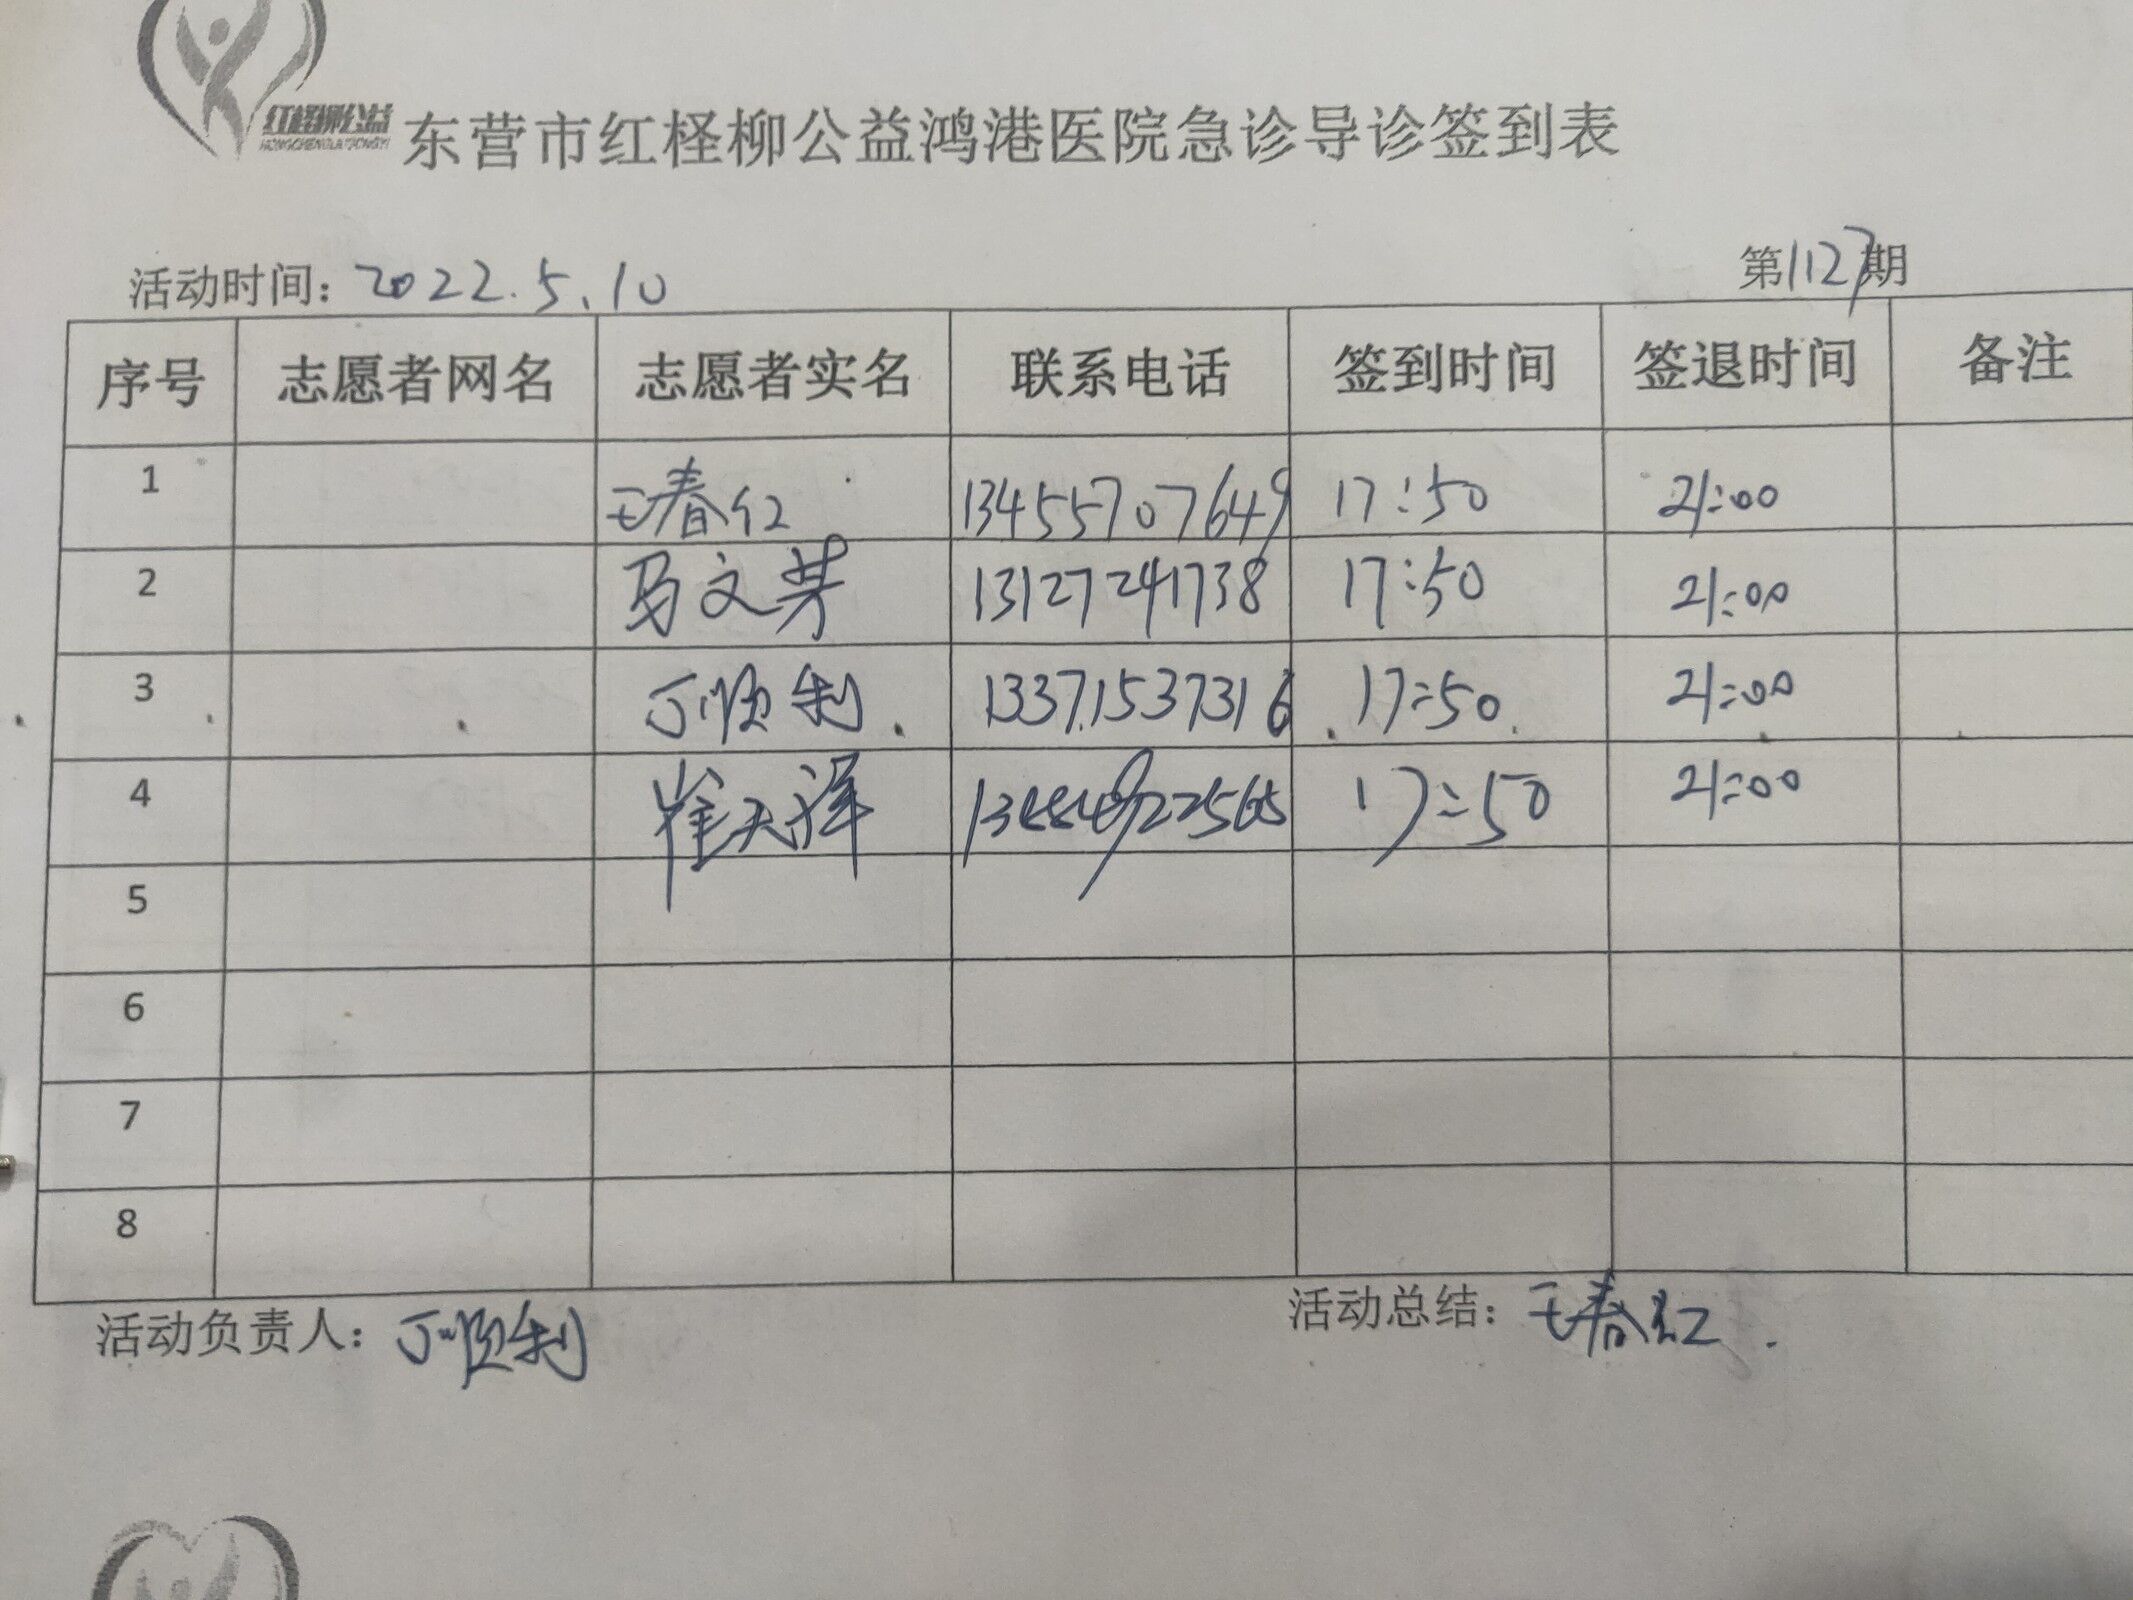 红柽柳公益
HONGCHENGLIUGONGYI
东营市红柽柳公益鸿港医院急诊导诊签到表
活动时间：2022.5.10 第1127期
序号 志愿者网名 志愿者实名 联系电话 签到时间 签退时间 备注
1 王春红 13455707649 17:50 21:00
2 马文芽 13127241738 17:50 21:00
3 丁顺利 13371537316 17:50 21:00
4 崔天泽 17:50 21:00
5
6
7
8
活动负责人：丁顺利 活动总结：王春红